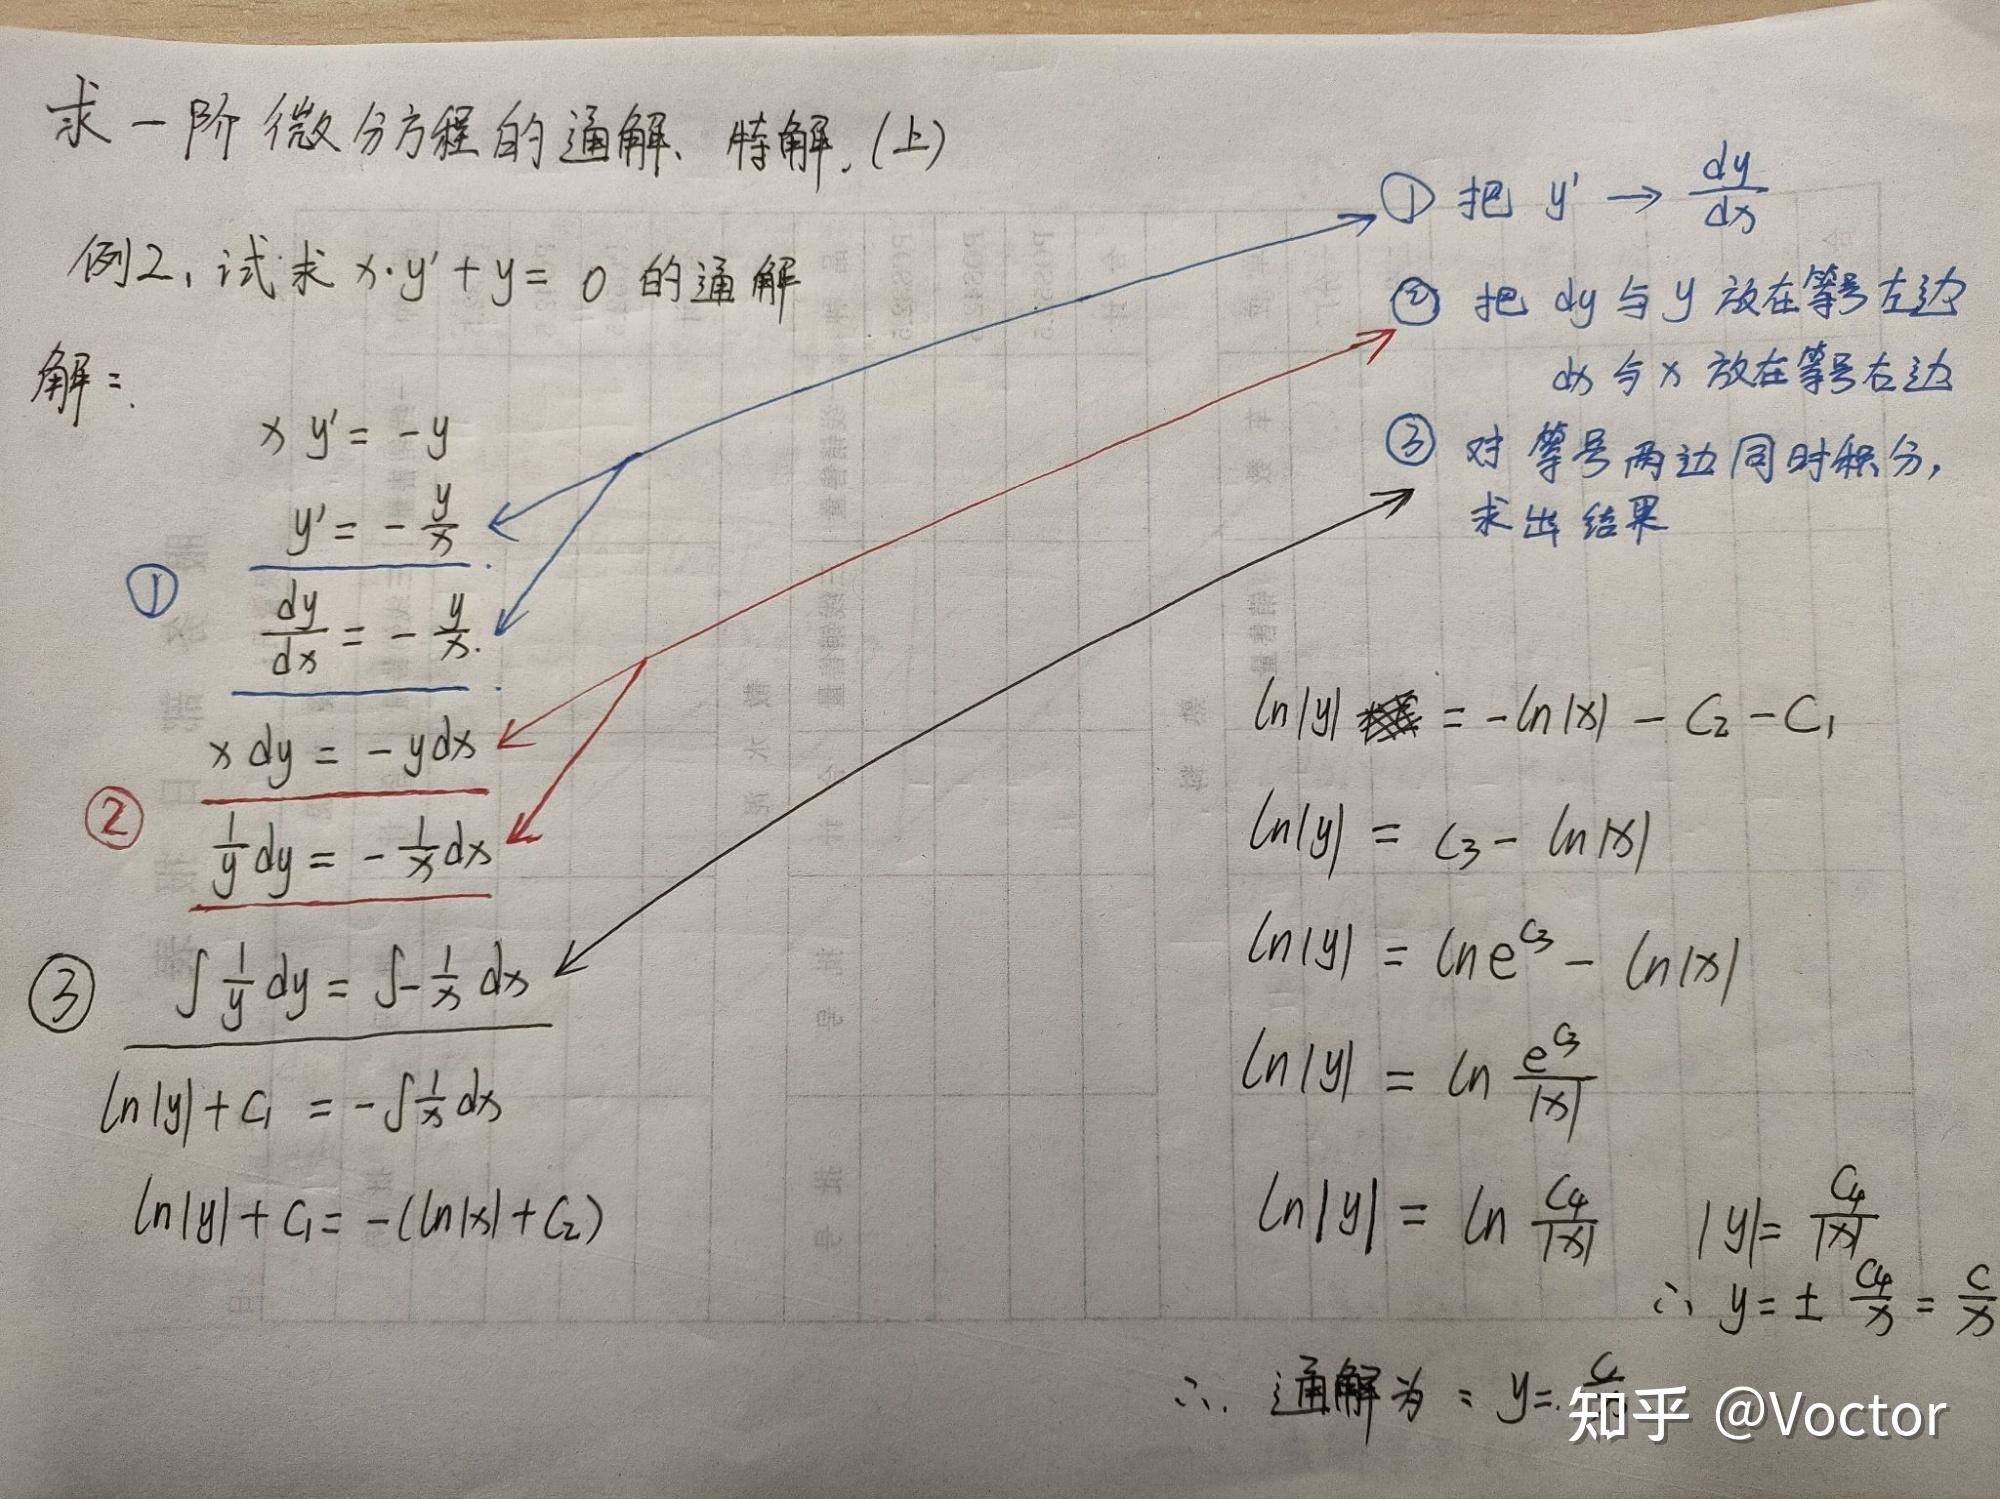 求一阶微分方程的通解、特解.(上)
例2, 试求 x·y' + y = 0 的通解
解:
x y' = -y
y' = - y/x
①
dy/dx = - y/x.
x dy = - y dx
②
1/y dy = - 1/x dx
③ ∫ 1/y dy = ∫ - 1/x dx
ln|y| + C₁ = - ∫ 1/x dx
ln|y| + C₁ = -(ln|x| + C₂)
① 把 y' → dy/dx
② 把 dy 与 y 放在等号左边
dx 与 x 放在等号右边
③ 对等号两边同时积分,
求出结果
ln|y| = -ln|x| - C₂ - C₁
ln|y| = C₃ - ln|x|
ln|y| = ln e^C₃ - ln|x|
ln|y| = ln e^C₃/|x|
ln|y| = ln C₄/|x| |y| = C₄/|x|
∴ y = ± C₄/x = C/x
∴ 通解为: y = C
知乎 @Voctor